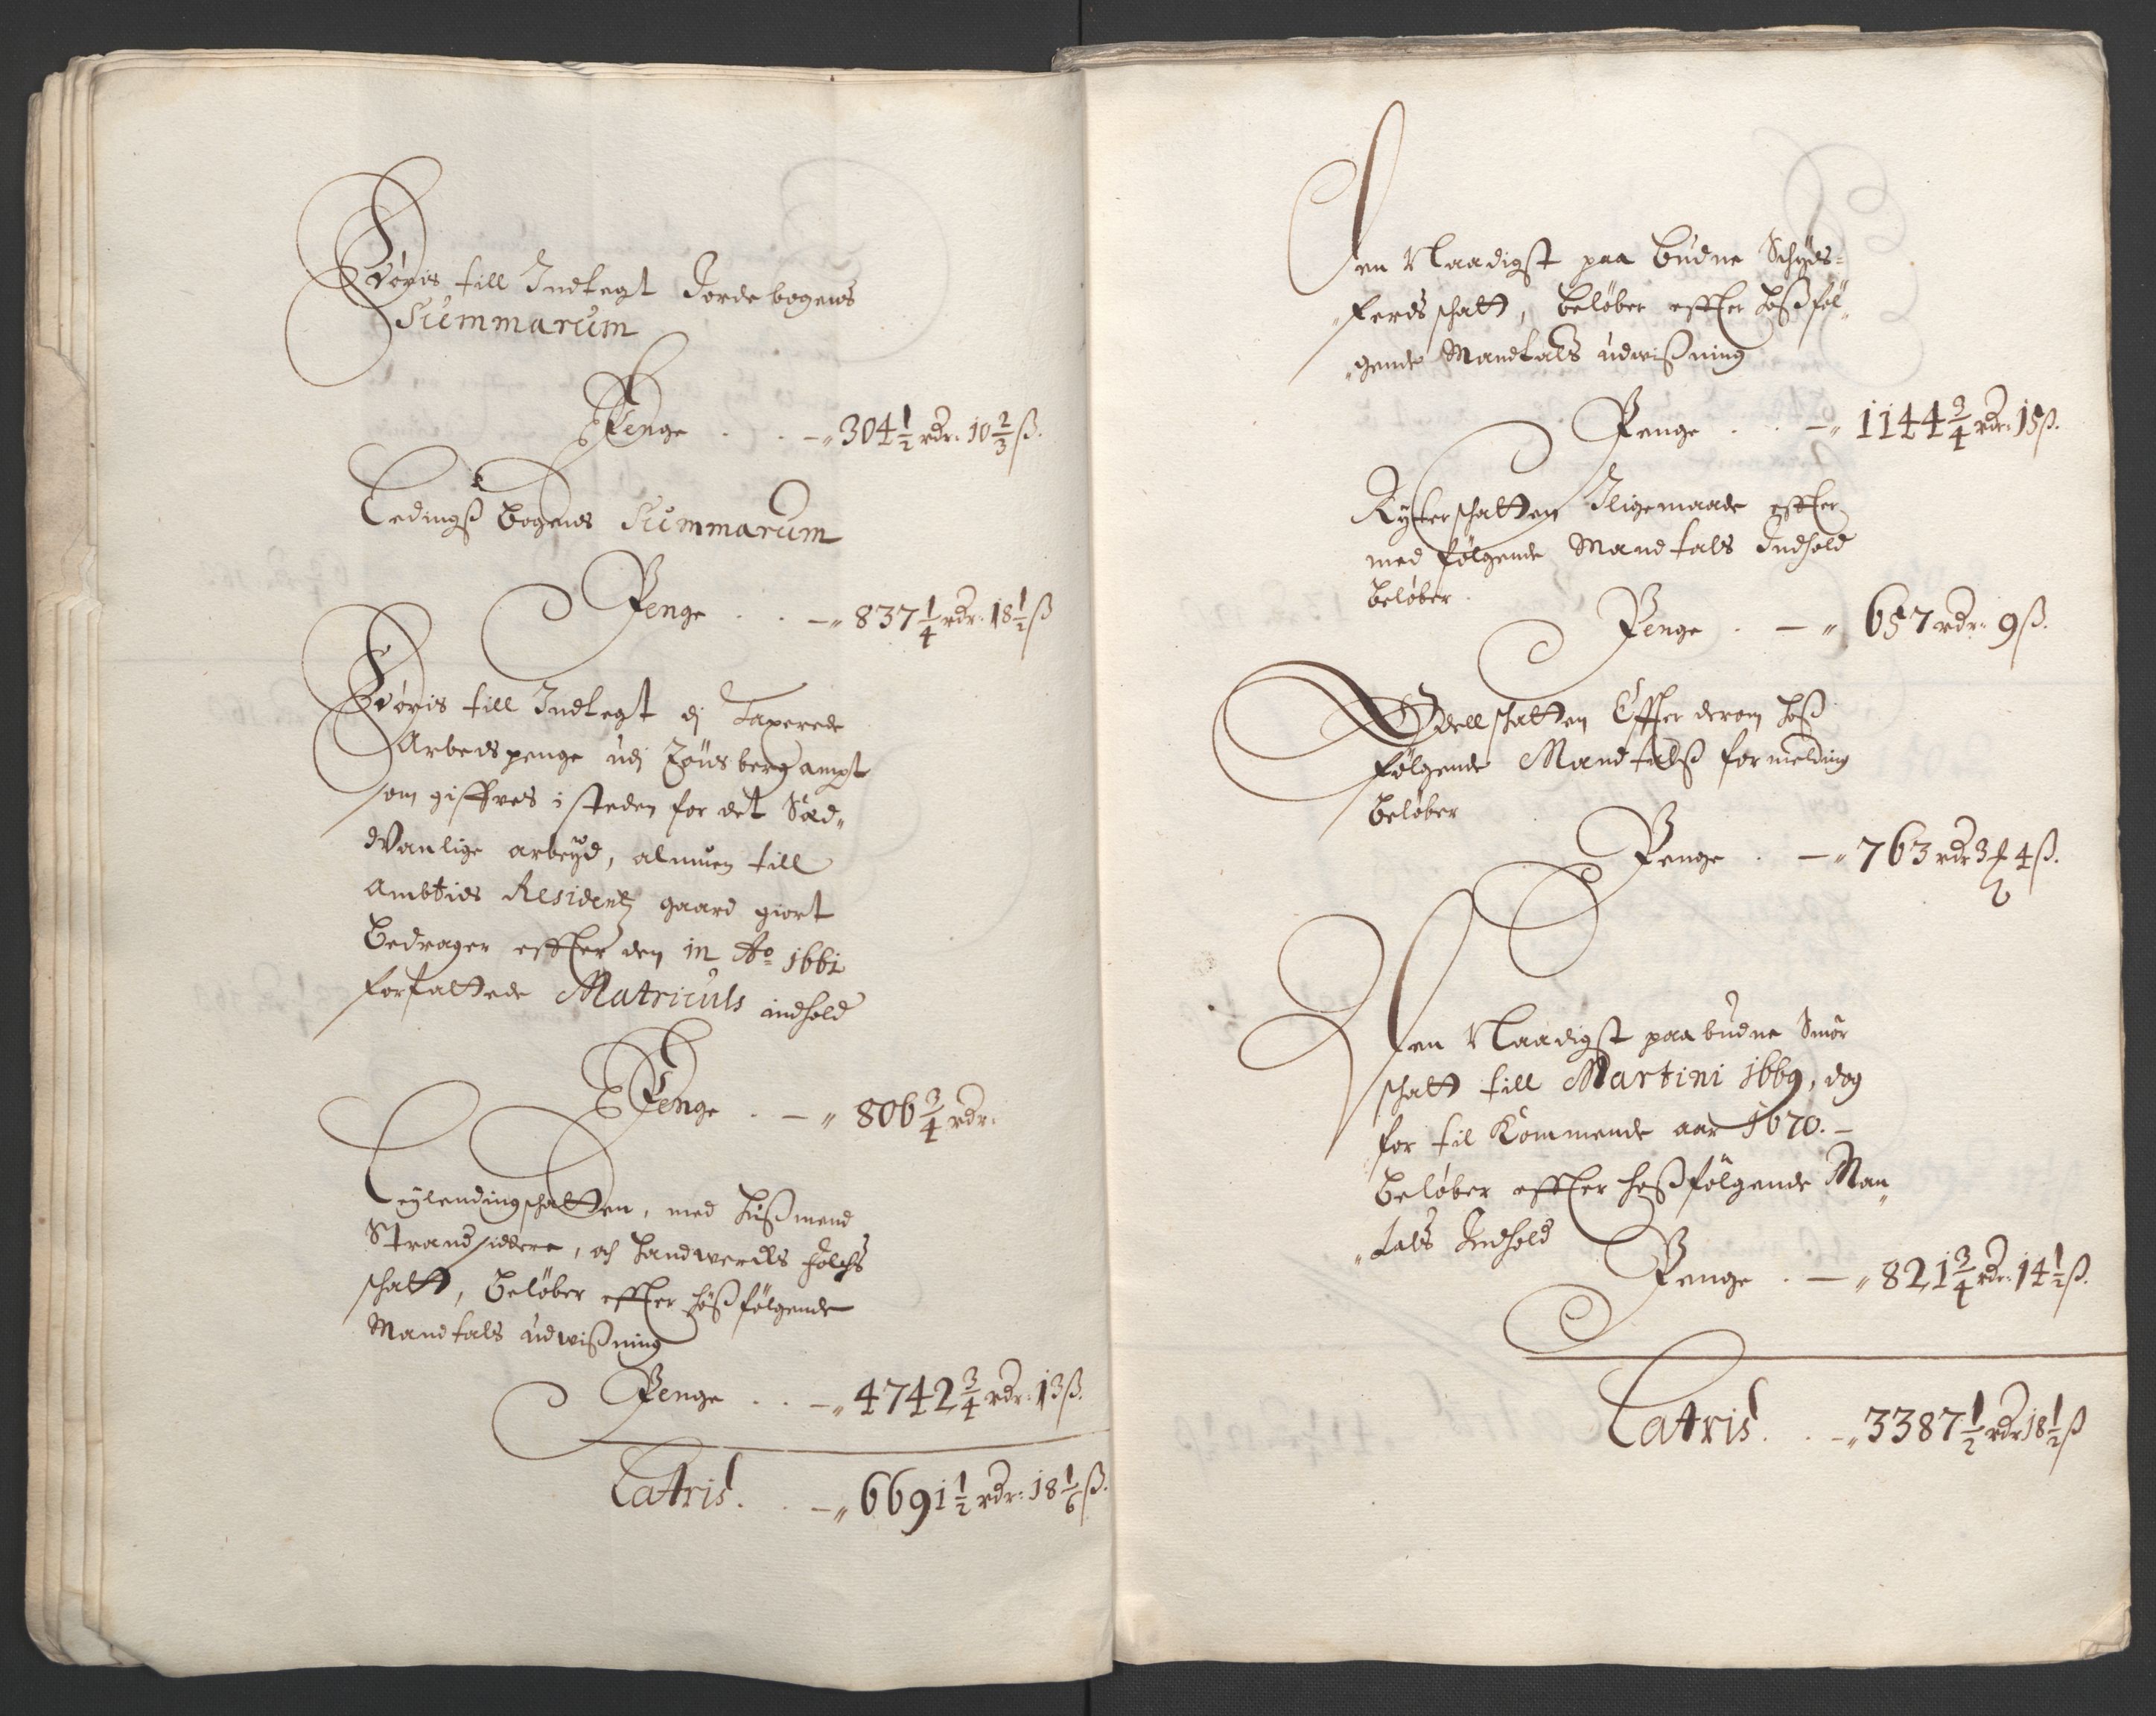 Føris till Indtegt Jordebogens
Summarum
Penge . . — 304 1/2 rdr: 10 2/3 ß.
Ledings Bogens Summarum
Penge . . — 837 1/4 rdr: 18 1/2 ß
Føris till Indtegt dj Taxerede
Arbeds penge udj Tønsberg ampt
som giffves i steden for det Sæd„
dvanlige arbeyd, almuen till
Ambtids Residentz gaard giort
Bedrager effter den in Ao 1661
forfattede Matriculs indhold
Penge . — „ 806 3/4 rdr.
Leylendingschatten, med Hußmend
Strandsiddere, och Handwercks folchs
schatt, Beløber effter hoßfølgende
Mandtals udwißning
Penge . . — „ 4742 3/4 rdr: 13 ß.
Latris. . — „ 6691 1/2 rdr: 18 1/6 ß.
Den Naadigst paa budne Schyds=
„ferds schatt, beløber effter hoßføl„
„gende Mandtals udwißning
Penge . . — „ 1144 3/4 rdr: 15 ß.
Rytterschatten Iligemaade effter
med følgende Mandtals Indhold
Beløber.
Penge . — „ 657 rdr: 9 ß.
Odell schatten Effter derom hoß
følgende Mandtalß formelding
Beløber
Penge . — „ 763 rdr 3 ƒ 4 ß.
Den Naadigst paabudne Smør
schatt till Martini 1669, dog
for til Kommende aar 1670. —
Beløber effter hoßfølgende Man„
„tals Indhold
Penge . — „ 821 3/4 rdr: 14 1/2 ß.
Latris. . — „ 3387 1/2 rdr 18 1/2 ß